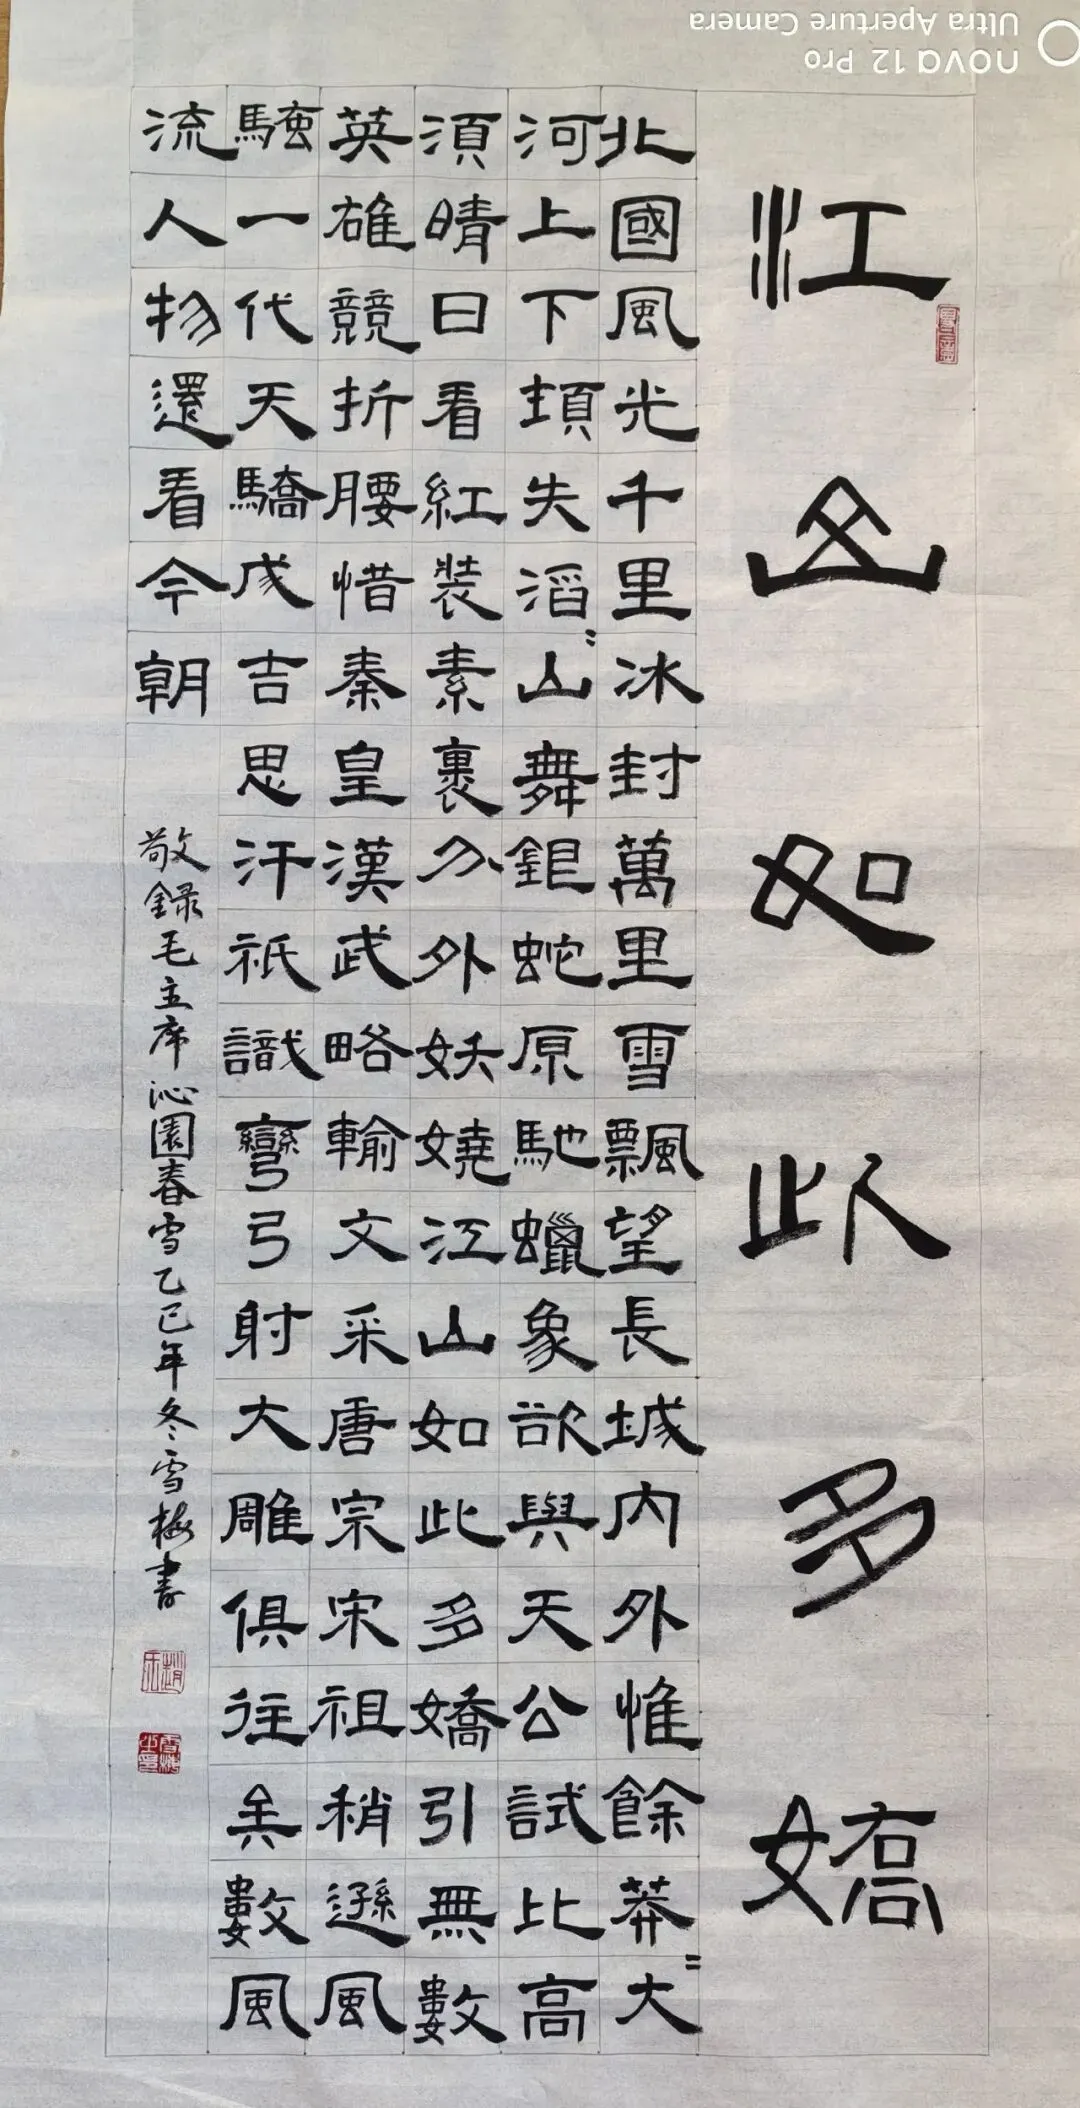 江山如此多嬌
北國風光千里冰封萬里雪飄望長城內外惟餘莽〻大
河上下頓失滔〻山舞銀蛇原馳蠟象欲與天公試比高
須晴日看紅裝素裹分外妖嬈江山如此多嬌引無數
英雄競折腰惜秦皇漢武略輸文采唐宗宋祖稍遜風
騷一代天驕成吉思汗祇識彎弓射大雕俱往矣數風
流人物還看今朝
敬録毛主席沁園春雪乙巳年冬雪梅書
nova 12 Pro
Ultra Aperture Camera